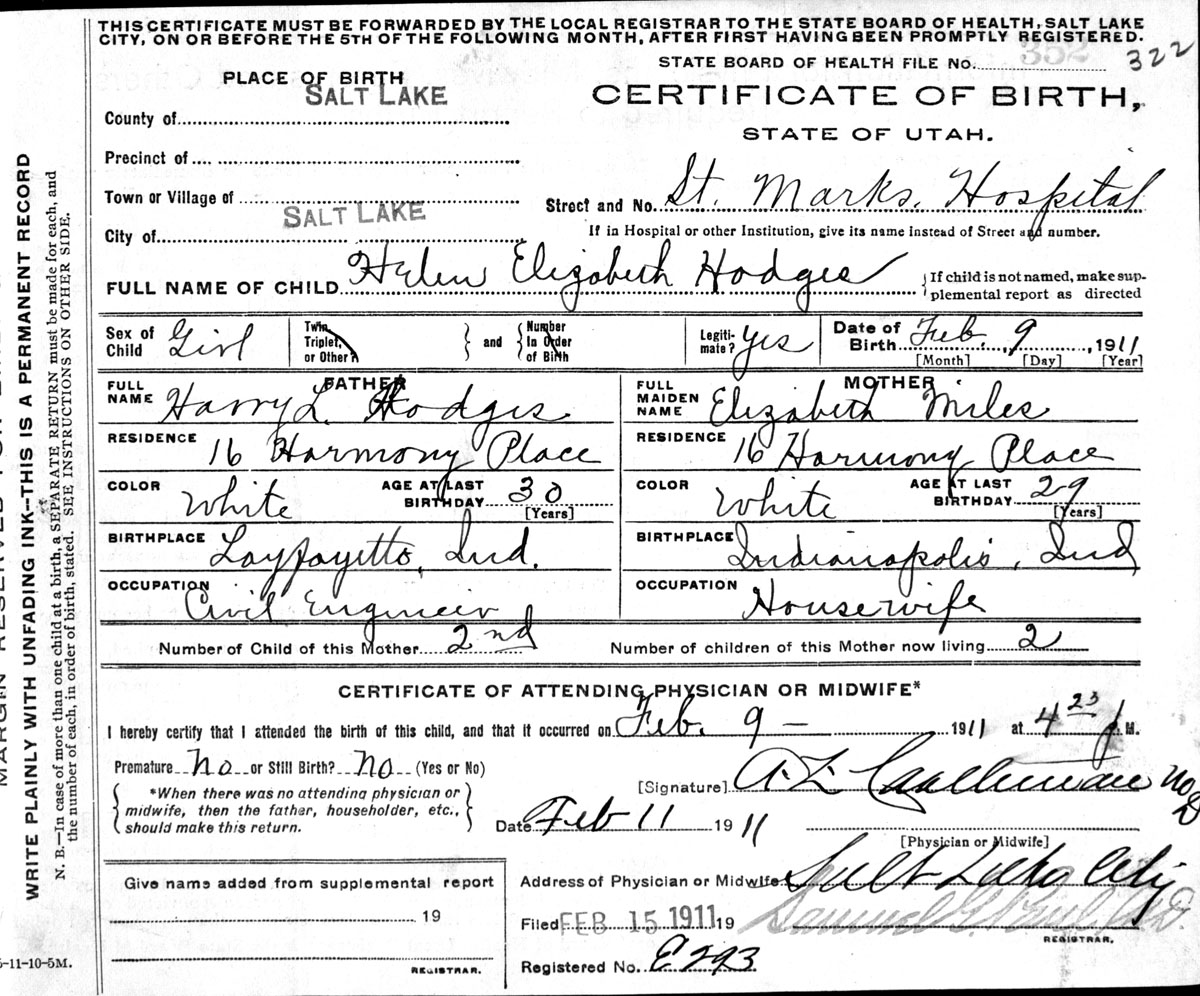 THIS CERTIFICATE MUST BE FORWARDED BY THE LOCAL REGISTRAR TO THE STATE BOARD OF HEALTH, SALT LAKE
CITY, ON OR BEFORE THE 5TH OF THE FOLLOWING MONTH, AFTER FIRST HAVING BEEN PROMPTLY REGISTERED.
STATE BOARD OF HEALTH FILE No. 352 322
PLACE OF BIRTH
CERTIFICATE OF BIRTH,
STATE OF UTAH.
SALT LAKE
County of
Precinct of
Town or Village of
Street and No. St. Marks. Hospital
SALT LAKE
City of
If in Hospital or other Institution, give its name instead of Street and number.
FULL NAME OF CHILD Helen Elizabeth Hodges
If child is not named, make sup-
plemental report as directed
Sex of Child Girl
Twin, Triplet, or Other?
and
Number In Order of Birth
Legiti-mate? Yes
Date of Birth Feb. 9, 1911
[Month] [Day] [Year]
FATHER
FULL NAME Harry L. Hodges
RESIDENCE 16 Harmony Place
COLOR White AGE AT LAST BIRTHDAY 30
[Years]
BIRTHPLACE Layfayette, Ind.
OCCUPATION Civil Engineer
MOTHER
FULL MAIDEN NAME Elizabeth Miles
RESIDENCE 16 Harmony Place
COLOR White AGE AT LAST BIRTHDAY 29
[Years]
BIRTHPLACE Indianapolis, Ind
OCCUPATION Housewife
Number of Child of this Mother 2nd Number of children of this Mother now living 2
CERTIFICATE OF ATTENDING PHYSICIAN OR MIDWIFE*
I hereby certify that I attended the birth of this child, and that it occurred on Feb. 9 - 1911 at 4 23 P M.
Premature No or Still Birth? No (Yes or No)
[Signature] A. L.
*When there was no attending physician or
midwife, then the father, householder, etc.,
should make this return.
Date Feb 11 1911
[Physician or Midwife]
Address of Physician or Midwife Salt Lake City
Give name added from supplemental report
19
REGISTRAR.
Filed FEB 15 1911 19 Samuel G. Paul, M.D.
REGISTRAR.
Registered No. E 293
5-11-10-5M.
MARGIN RESERVED FOR
WRITE PLAINLY WITH UNFADING INK—THIS IS A PERMANENT RECORD
N. B.—In case of more than one child at a birth, a SEPARATE RETURN must be made for each, and
the number of each, in order of birth, stated. SEE INSTRUCTIONS ON OTHER SIDE.